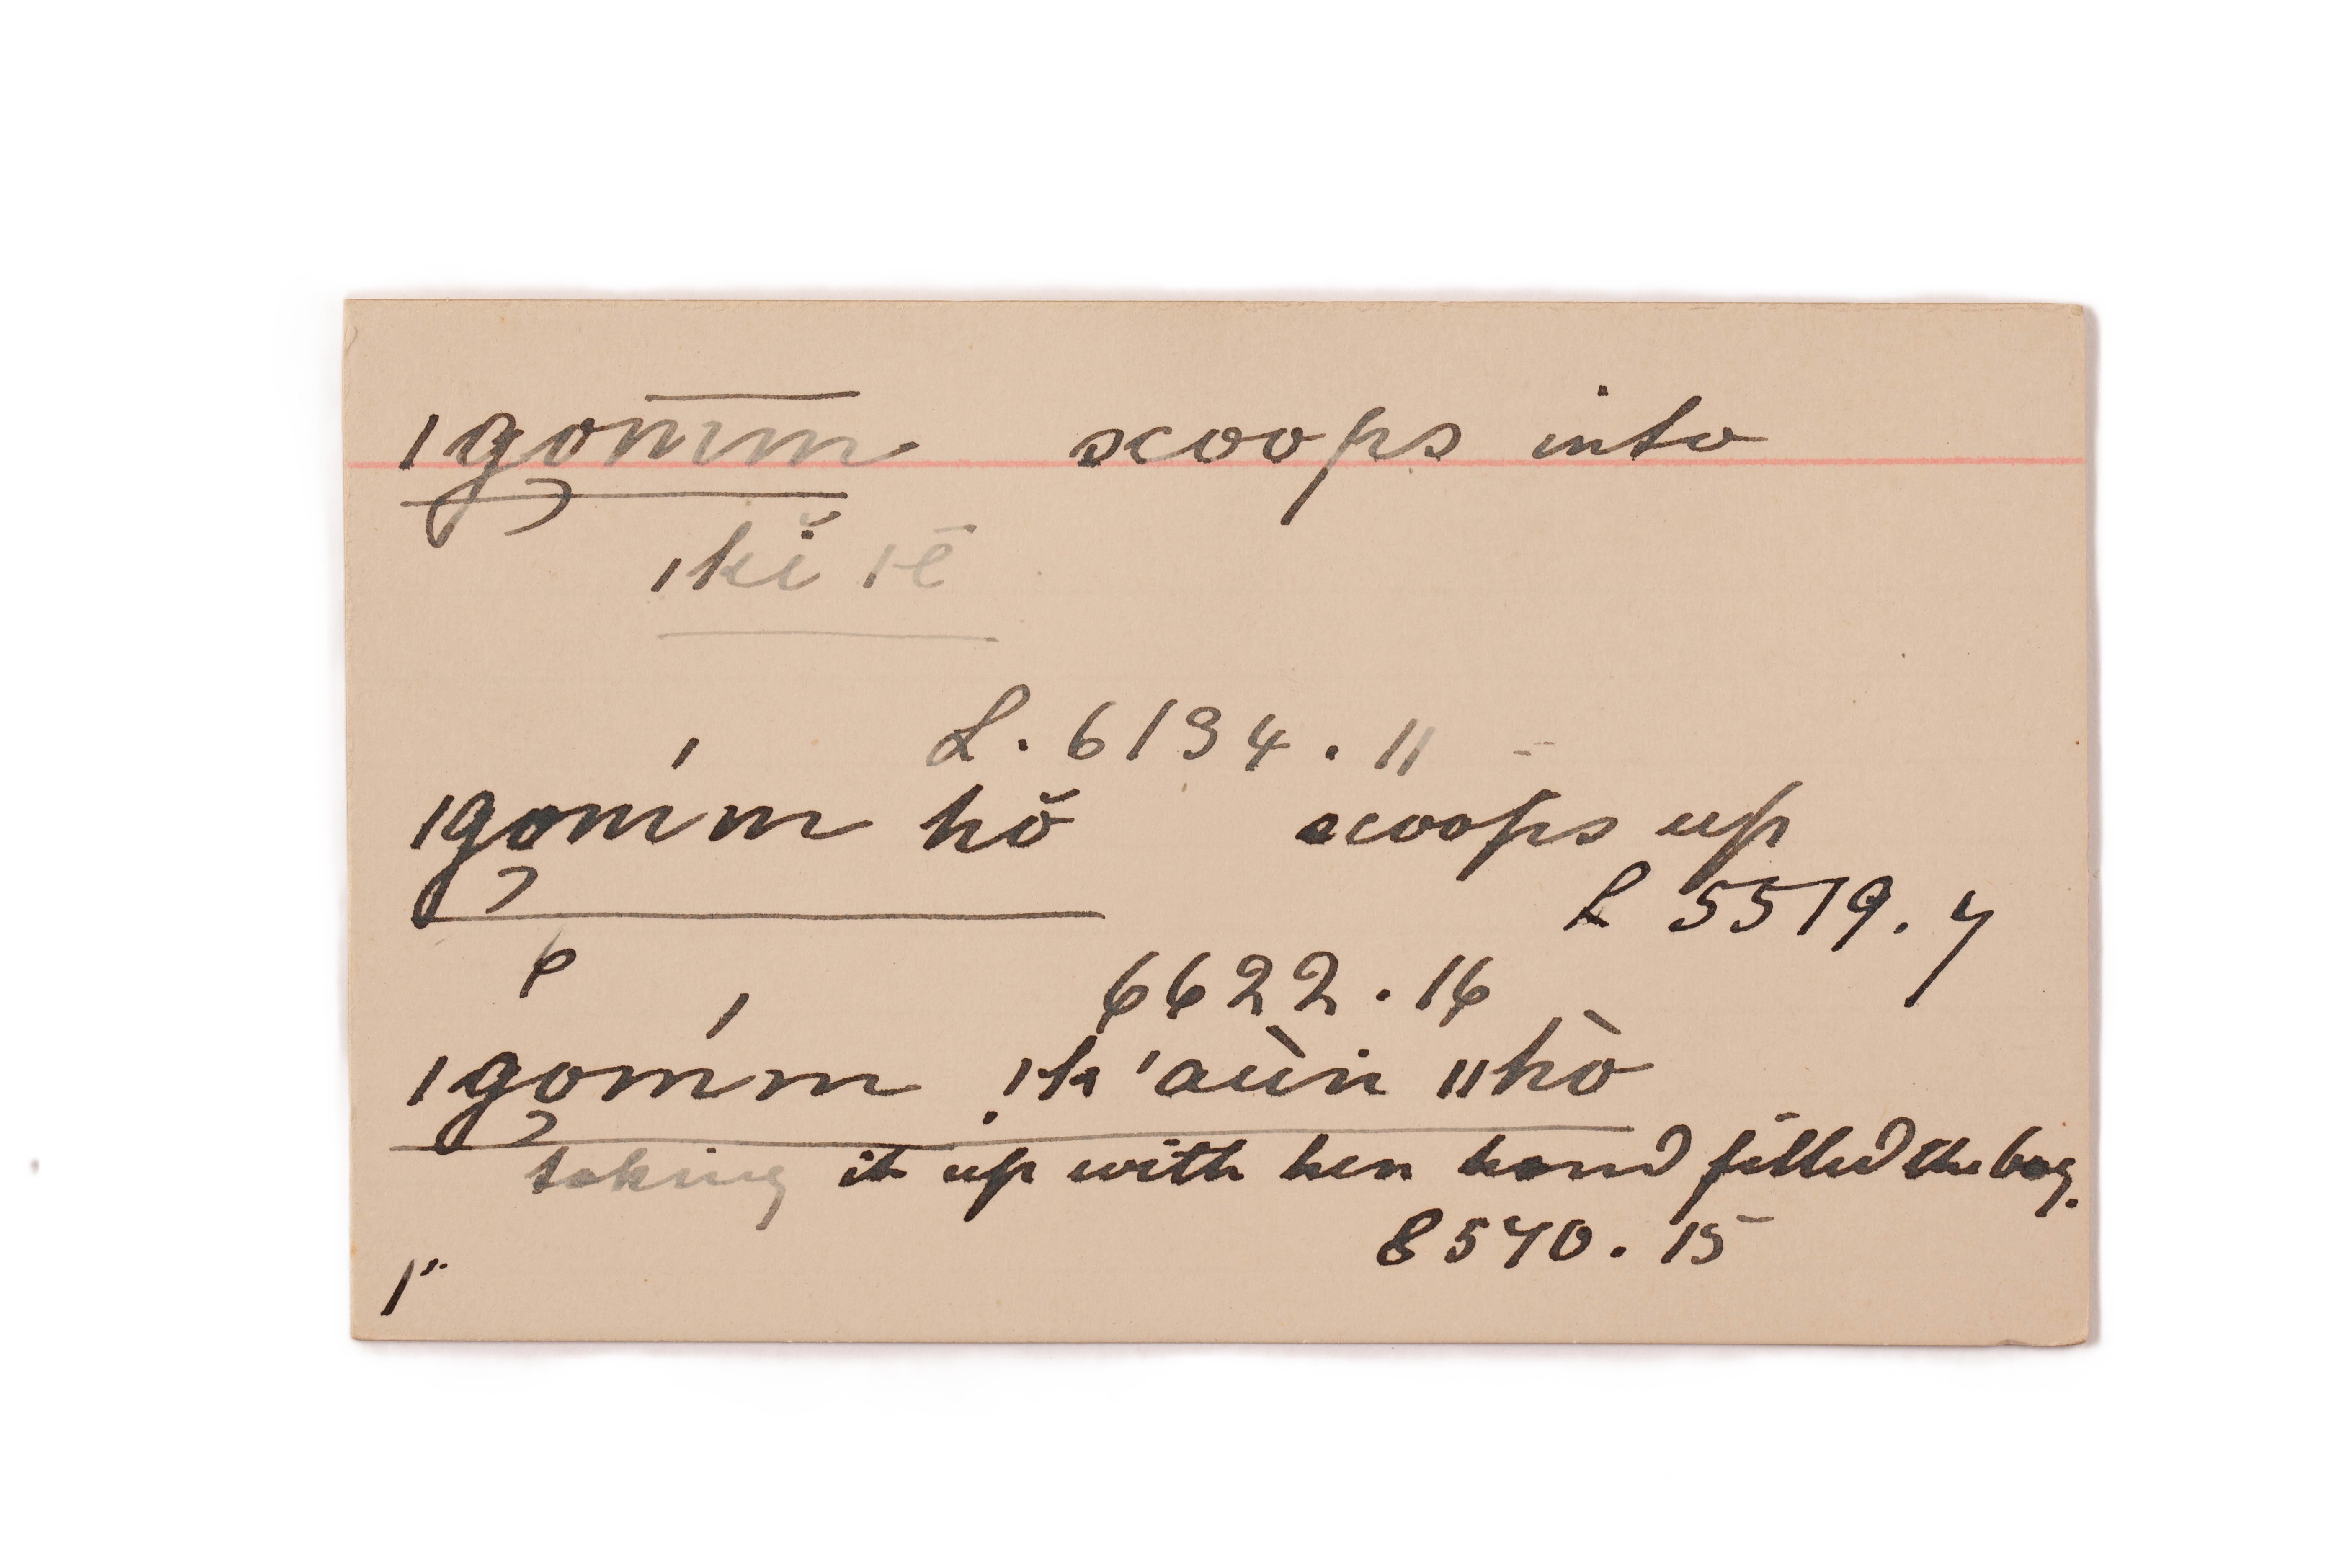 |go̅m̅m̅ scoops into
|kĭ |ē
L. 6134. 11
|goḿm hŏ scoops up
L 5519. 7
6622. 16
|goḿm !k'aùn ||hò
taking it up with her hand filled the bag.
8570. 15